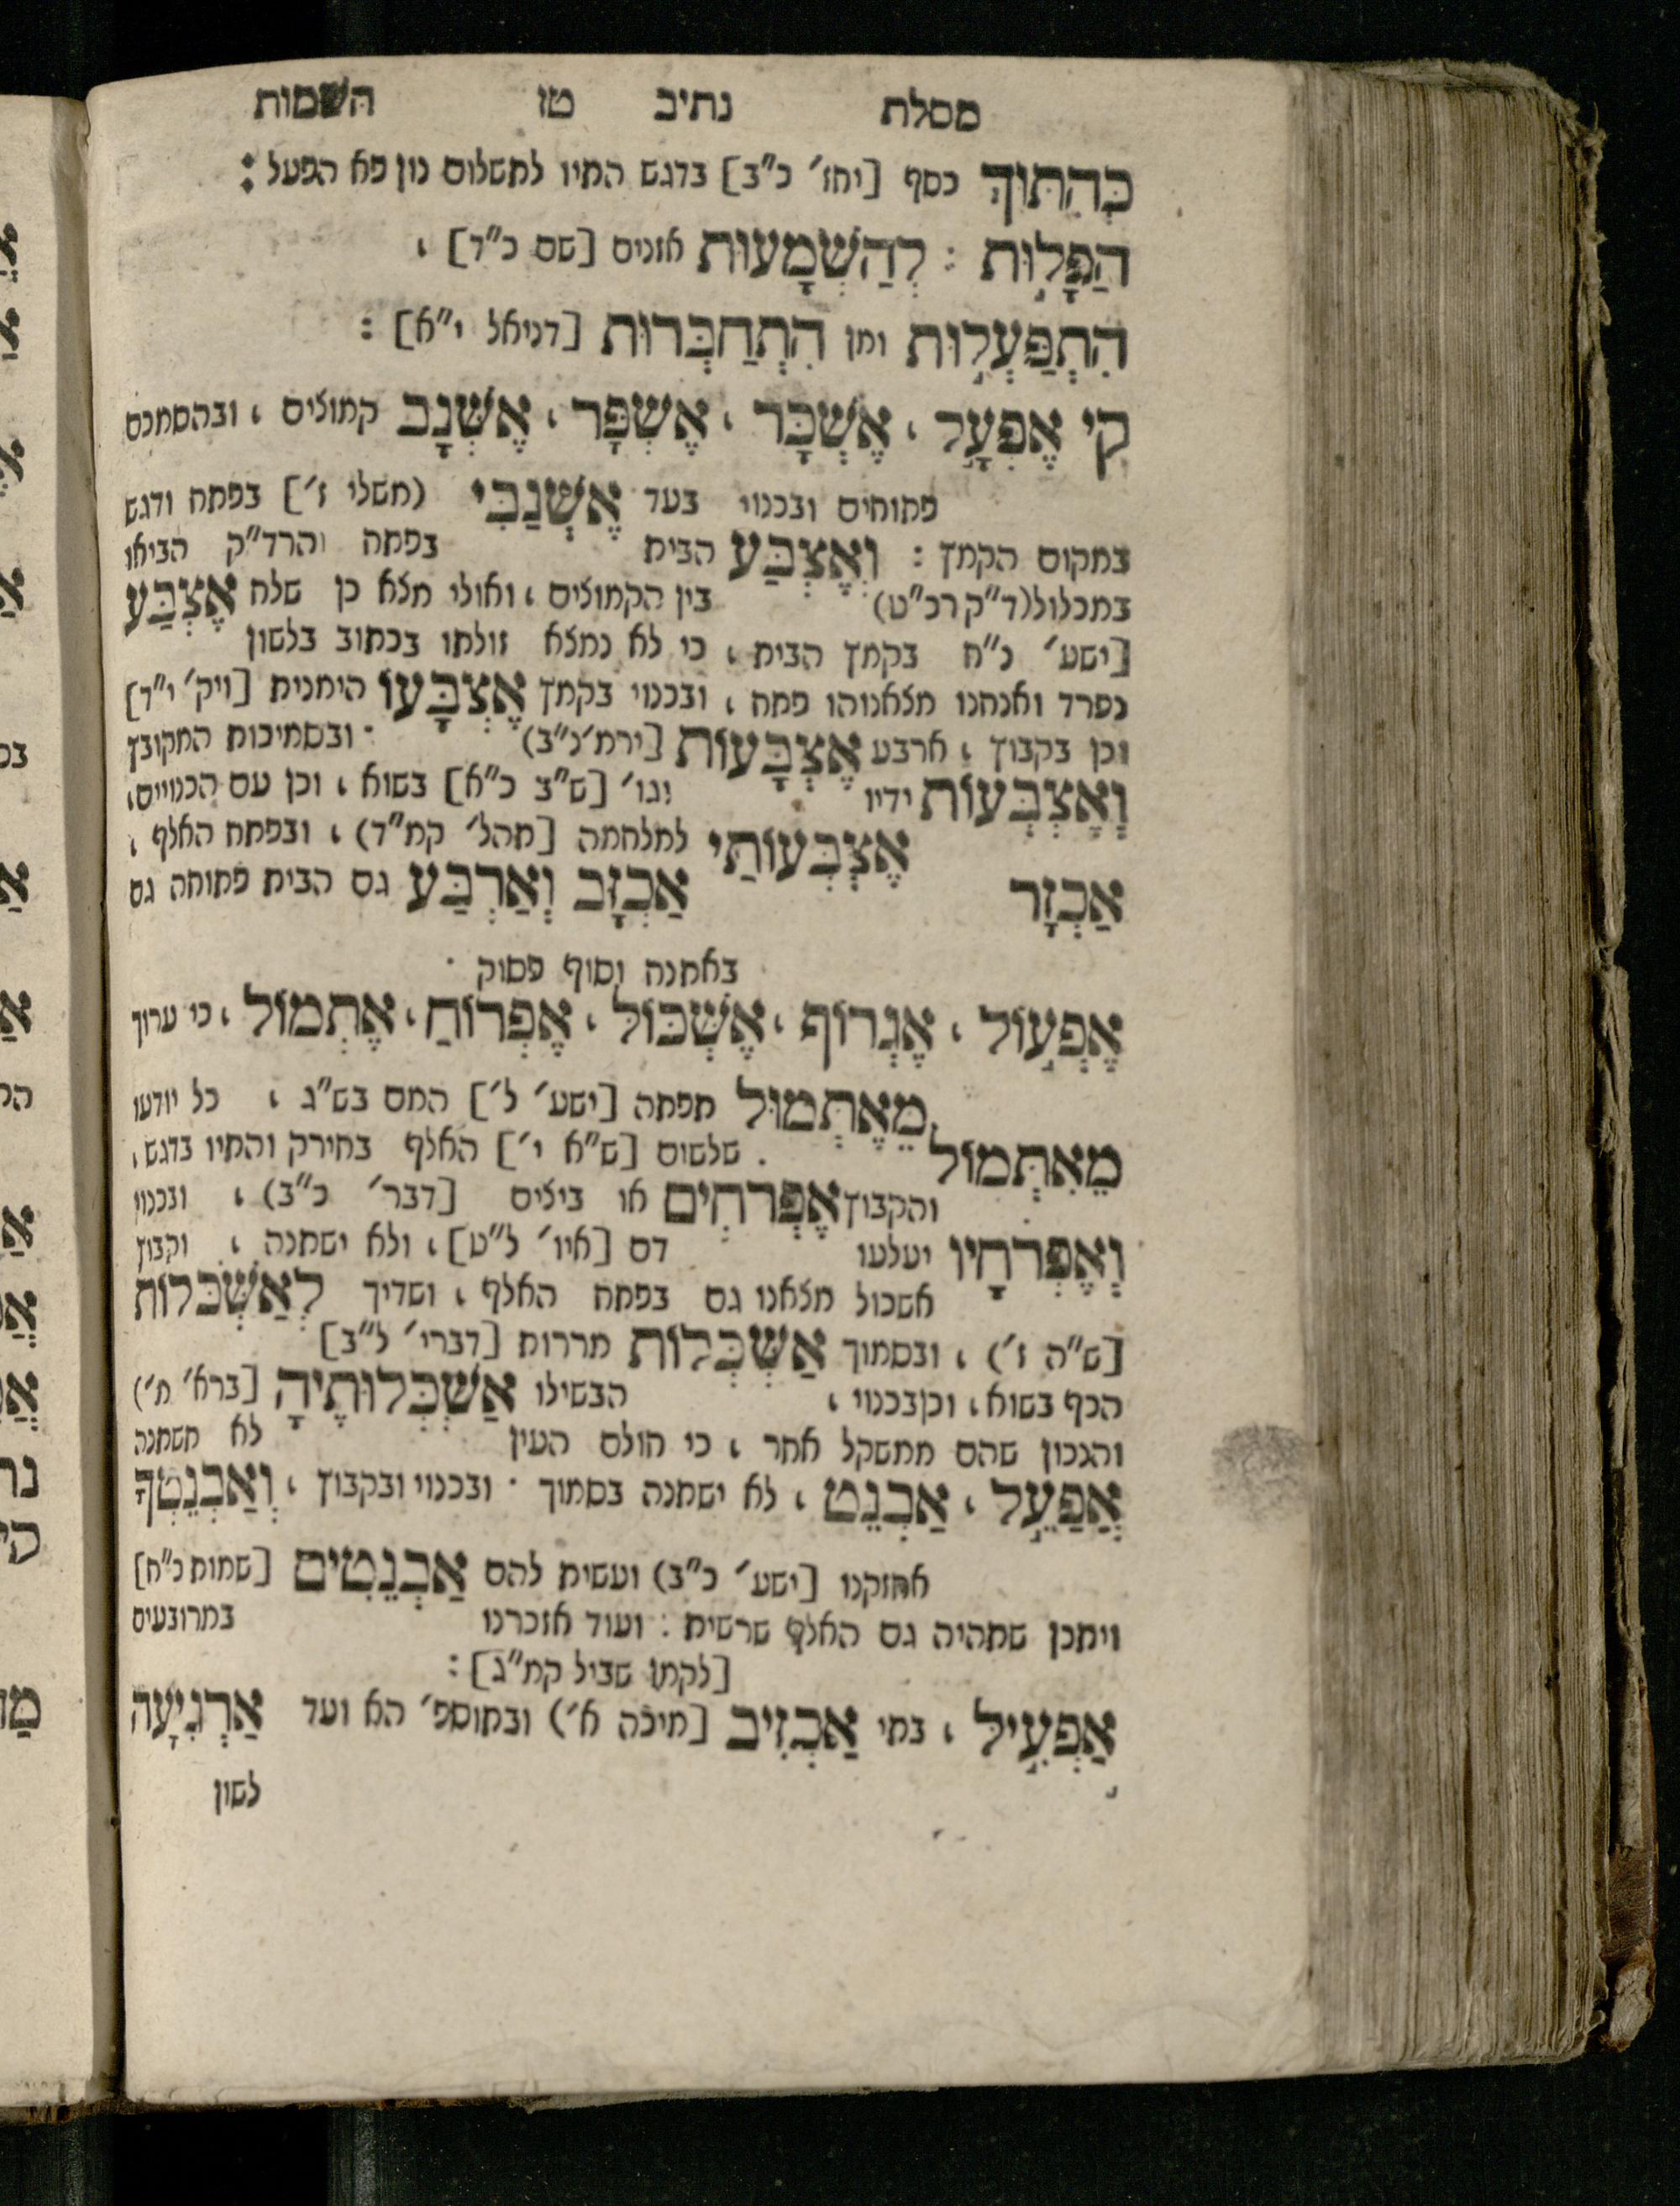 מסלת נתיב טז השמות
כְּהִתּוּךְ כסף [יחז׳ כ״ב] בדגש התיו לתשלום נון פא הפעל :
הַפָּלוּת : לְהַשְׁמָעוּת אזנים [שם כ״ד] ,
הִתְפַּעְלוּת ומן הִתְחַבְּרוּת [דניאל י״א] :
קי אֶפְעָל , אֶשְׁכָּר , אֶשְׁפָּר , אֶשְׁנָב קמוצים , ובהסמכם
פתוחים ובכנוי בעד אֶשְׁנַבִּי (משלי ז׳] בפתח ודגש
במקום הקמץ : וְאֶצְבַּע הבית בפתח והרד״ק הביאו
במכלול(ד״ק רכ״ט) בין הקמוצים , ואולי מצא כן שלח אֶצְבַּע
[ישע׳ נ״ח בקמץ הבית , כי לא נמצא זולתו בכתוב בלשון
נפרד ואנחנו מצאנוהו פתח , ובכנוי בקמץ אֶצְבָּעוֹ הימנית [ויק׳ י״ד]
וכן בקבוץ , ארבע אֶצְבָּעוֹת [ירמ׳ נ״ב) · ובסמיכות המקובץ
וְאֶצְבְּעוֹת ידיו וגו׳ [ש״ב כ״א] בשוא , וכן עם הכנויים,
אֶצְבְּעוֹתַי למלחמה [תהל׳ קמ״ד) , ובפתח האלף ,
אַכְזָר אַכְזָב וְאַרְבַּע גם הבית פתוחה גם
באתנח וסוף פסוק ·
אֶפְעוֹל , אֶגְרוֹף , אֶשְׁכּוֹל , אֶפְרוֹחַ , אֶתְמוֹל , כי ערוך
מֵאֶתְּמוּל תפתה [ישע׳ ל׳] התס בש״ג , כל יודעו
מֵאִתְּמוֹל שלשום [ש״א י׳] האלף בחירק והתיו בדגש ,
והקבוץ אֶפְרֹחִים או ביצים [דבר׳ כ״ב) , ובכנוי
וְאֶפְרֹחָיו יעלעו דם [איו׳ ל״ט] , ולא ישתנה , וקבוץ
אשכול מצאנו גם בפתח האלף , ושדיך לְאַשְׁכֹּלוֹת
[ש״ה ז׳) , ובסמוך אַשְׁכְּלוֹת מררות [דברי׳ ל״ב]
הכף בשוא , וכן בכנוי , הבשילו אַשְׁכְּלוֹתֶיהָ [ברא׳ מ׳)
והנכון שהם ממשקל אחר , כי חולם העין לא תשתנה
אַפְעֵל , אַבְנֵט , לא ישתנה בסמוך · ובכנוי ובקבוץ , וְאַבְנֵטְךָ
אחזקנו [ישע׳ כ״ב) ועשית להם אַבְנֵטִים [שמות כ״ח]
ויתכן שתהיה גם האלף שרשית : ועוד אזכרנו במרובעים
[לקמן שביל קמ״ג] :
אַפְעִיל , בתי אַכְזִיב [מיכה א׳) ובתוספ׳ הא ועד אַרְגִּיעָה
לשון